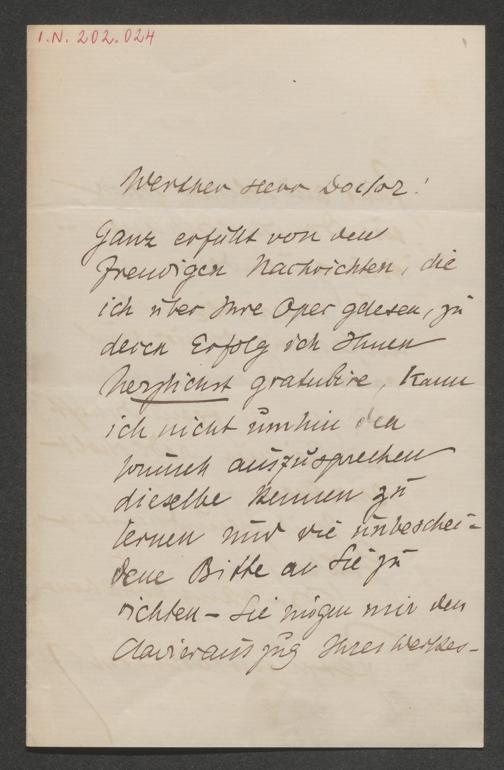 I.N. 202.024
Werther Herr Doctor!
Ganz erfüllt von den
freudigen Nachrichten, die
ich über Ihre Oper gelesen, zu
deren Erfolg ich Ihnen
herzlichst gratulire, kann
ich nicht umhin den
Wunsch auszusprechen
dieselbe kennen zu
lernen und die unbeschei=
dene Bitte an Sie zu
richten – Sie mögen mir den
Clavierauszug Ihres Werkes –